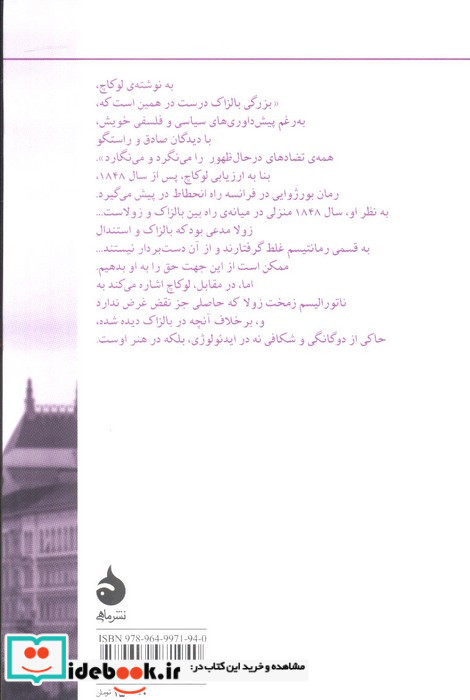 به نوشته‌ی لوکاچ،
«بزرگی بالزاک درست در همین است که،
به‌رغم پیش‌داوری‌های سیاسی و فلسفی خویش،
با دیدگان صادق و راستگو
همه‌ی تضادهای درحال‌ظهور را می‌نگرد و می‌نگارد».
بنا به ارزیابی لوکاچ، پس از سال ۱۸۴۸،
رمان بورژوایی در فرانسه راه انحطاط در پیش می‌گیرد.
به نظر او، سال ۱۸۴۸ منزلی در میانه‌ی راه بین بالزاک و زولاست...
زولا مدعی بود که بالزاک و استندال
به قسمی رمانتیسم غلط گرفتارند و از آن دست‌بردار نیستند...
ممکن است از این جهت حق را به او بدهیم.
اما، در مقابل، لوکاچ اشاره می‌کند به
ناتورالیسم زمخت زولا که حاصلی جز نقض غرض ندارد
و، برخلاف آنچه در بالزاک دیده شده،
حاکی از دوگانگی و شکافی نه در ایدئولوژی، بلکه در هنر اوست.
نشرماهی
ISBN 978-964-9971-94-0
تومان
مشاهده و خرید این کتاب در:
idebook.ir